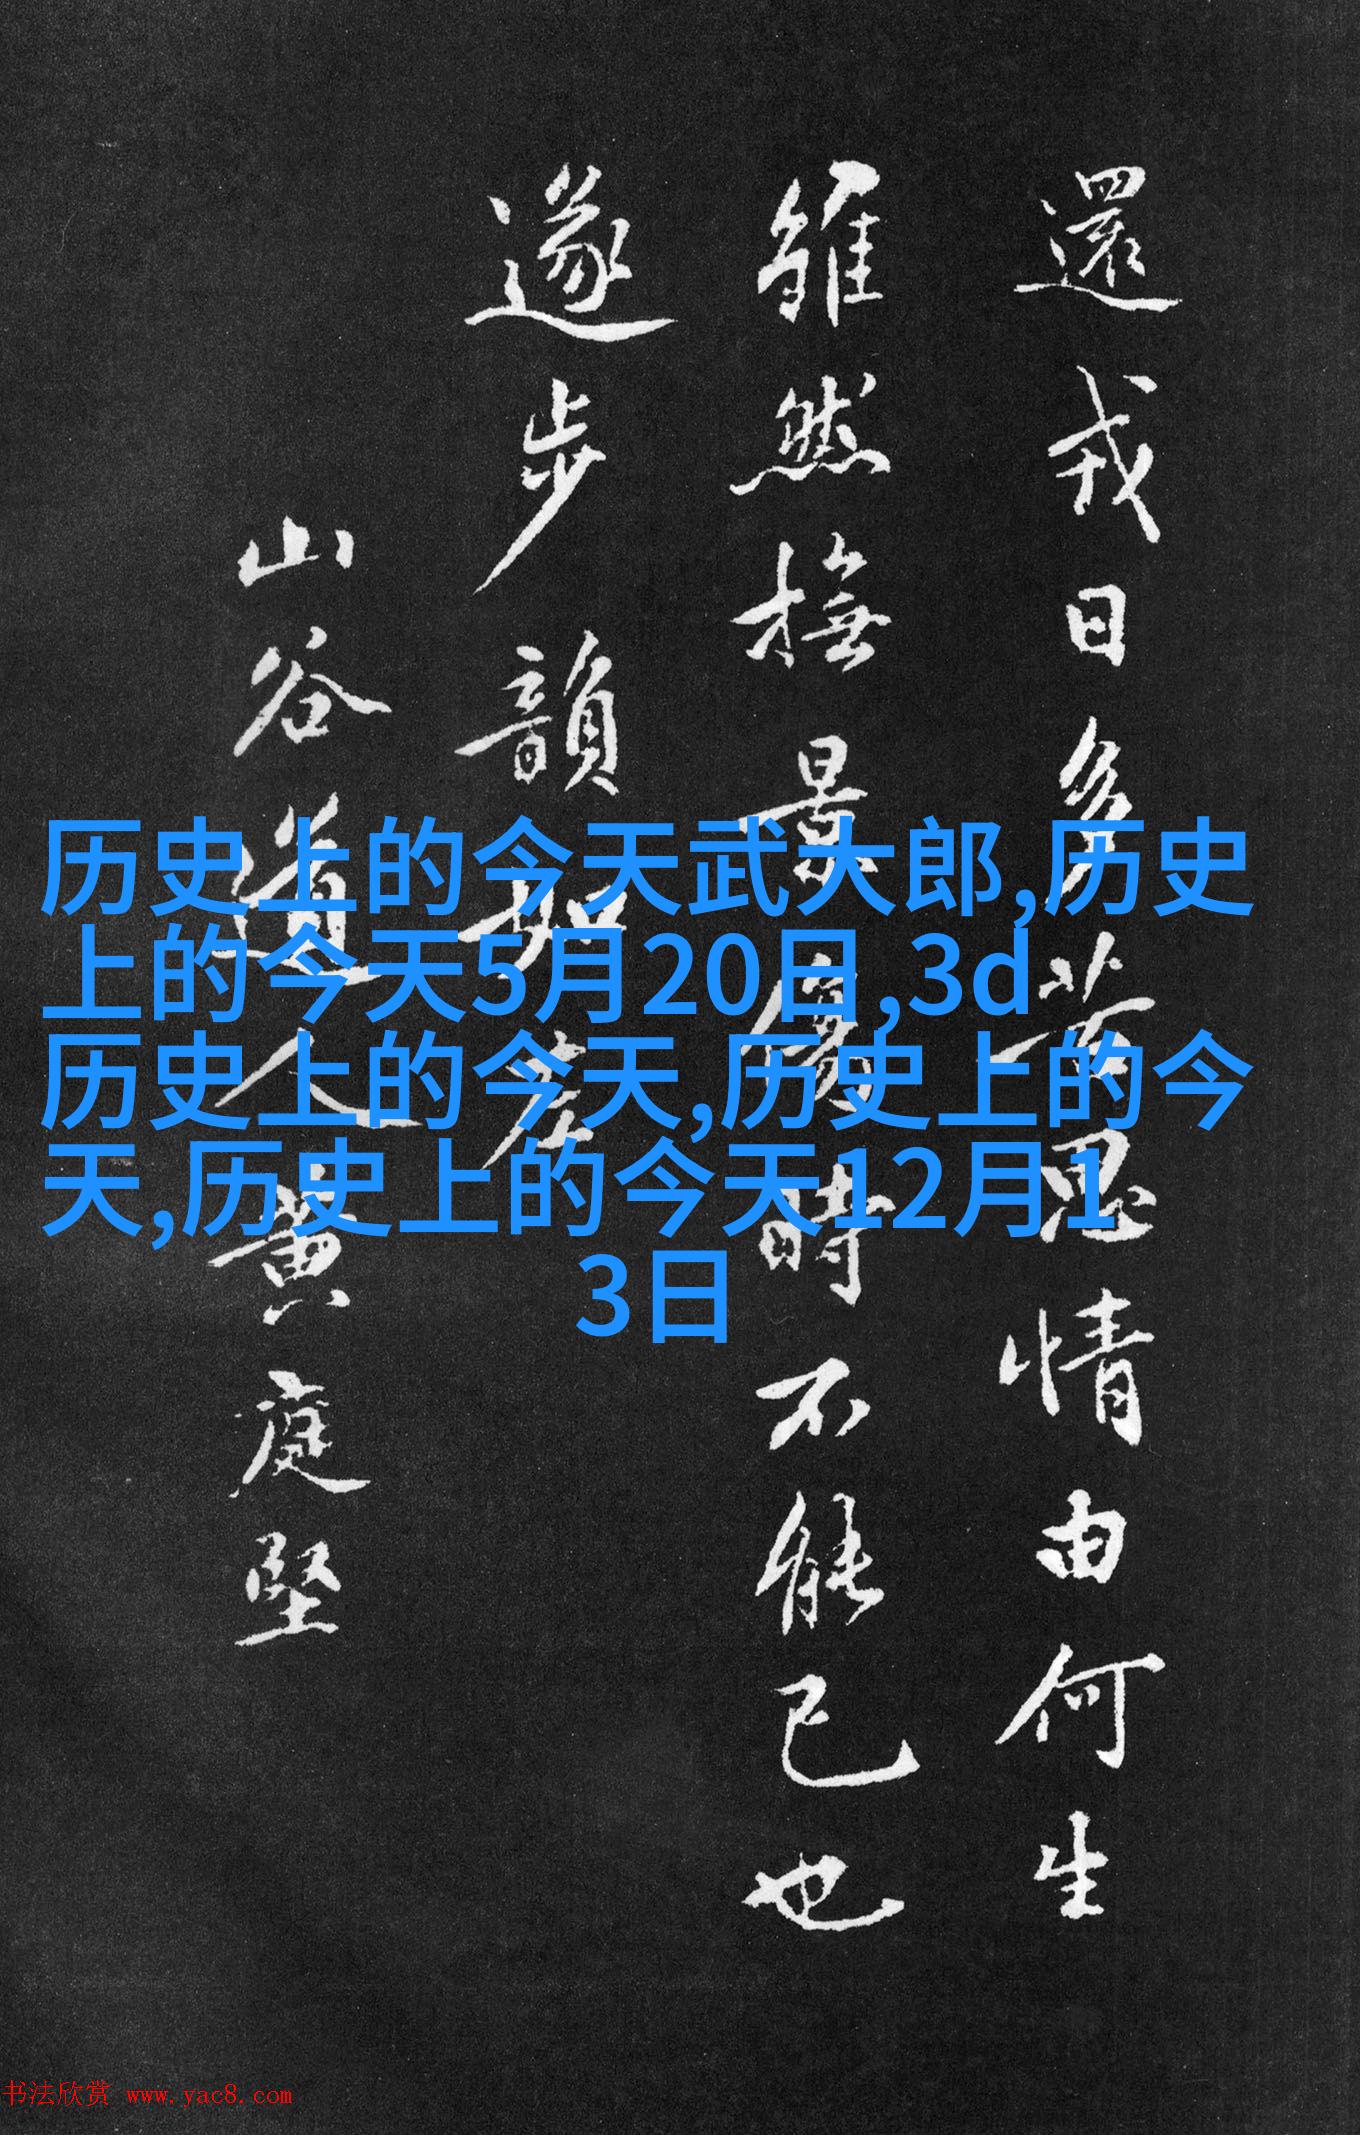 還戎日多苦思情由何生
雖然撫景傷時不能已也
遂步韻如左
山谷道人黄庭堅
历史上的今天武大郎,历史
上的今天5月20日,3d
历史上的今天,历史上的今
天,历史上的今天12月1
3日
书法欣赏 www.yac8.com